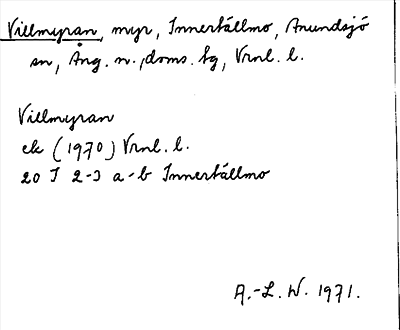 Villmyran, myr, Innertällmo, Anundsjö
sn, Ång. n., doms. hg, Vrnl. l.
Villmyran
ek (1970) Vrnl. l.
20 I 2-3 a-b Innertällmo
A.-L. W. 1971.